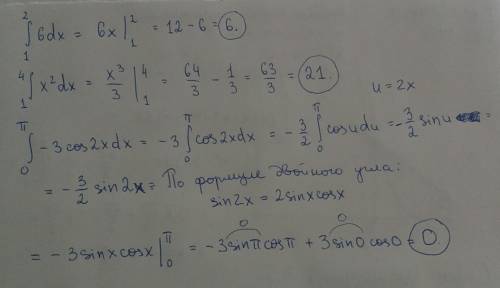 ∫₁² 6dx = 6x |₁² = 12 - 6 = 6.
₁⁴∫ x²dx = x³/3 |₁⁴ = 64/3 - 1/3 = 63/3 = 21.
u = 2x
∫₀^π -3cos2xdx = -3 ∫₀^π cos2xdx = -3/2 ∫₀^π cosudu = -3/2 sinu =
= -3/2 sin2x = По формуле двойного угла:
sin2x = 2sinxcosx
= -3sinxcosx |₀^π = -3sinπcosπ + 3sin0cos0 = 0.
0 0